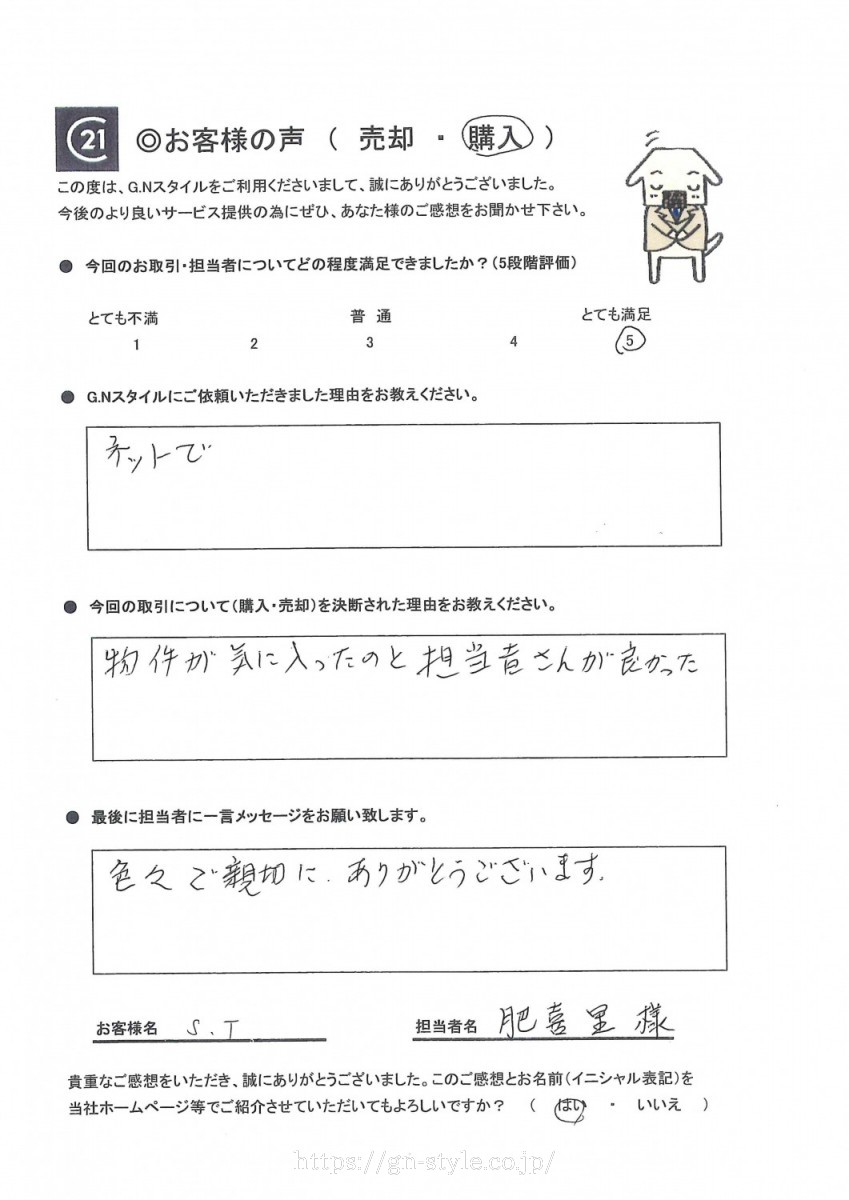 C21 ◎お客様の声 ( 売却 ・ 購入 )
この度は、G.Nスタイルをご利用くださいまして、誠にありがとうございました。
今後のより良いサービス提供の為にぜひ、あなた様のご感想をお聞かせ下さい。
● 今回のお取引・担当者についてどの程度満足できましたか？(5段階評価)
とても不満 普 通 とても満足
1 2 3 4 5
● G.Nスタイルにご依頼いただきました理由をお教えください。
ネットで
● 今回の取引について(購入・売却)を決断された理由をお教えください。
物件が気に入ったのと担当者さんが良かった
● 最後に担当者に一言メッセージをお願い致します。
色々ご親切に.ありがとうございます.
お客様名 S.T 担当者名 肥喜里 様
貴重なご感想をいただき、誠にありがとうございました。このご感想とお名前(イニシャル表記)を
当社ホームページ等でご紹介させていただいてもよろしいですか？ ( はい ・ いいえ )
https://gn-style.co.jp/